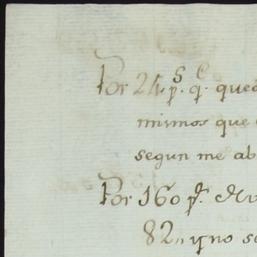 Por 24, p.^s q.^e que
mismos que
segun me ab
Por 160 p.^s
82,, y no s